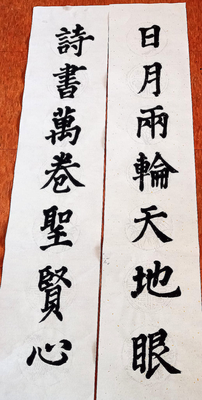 日月兩輪天地眼
詩書萬卷聖賢心